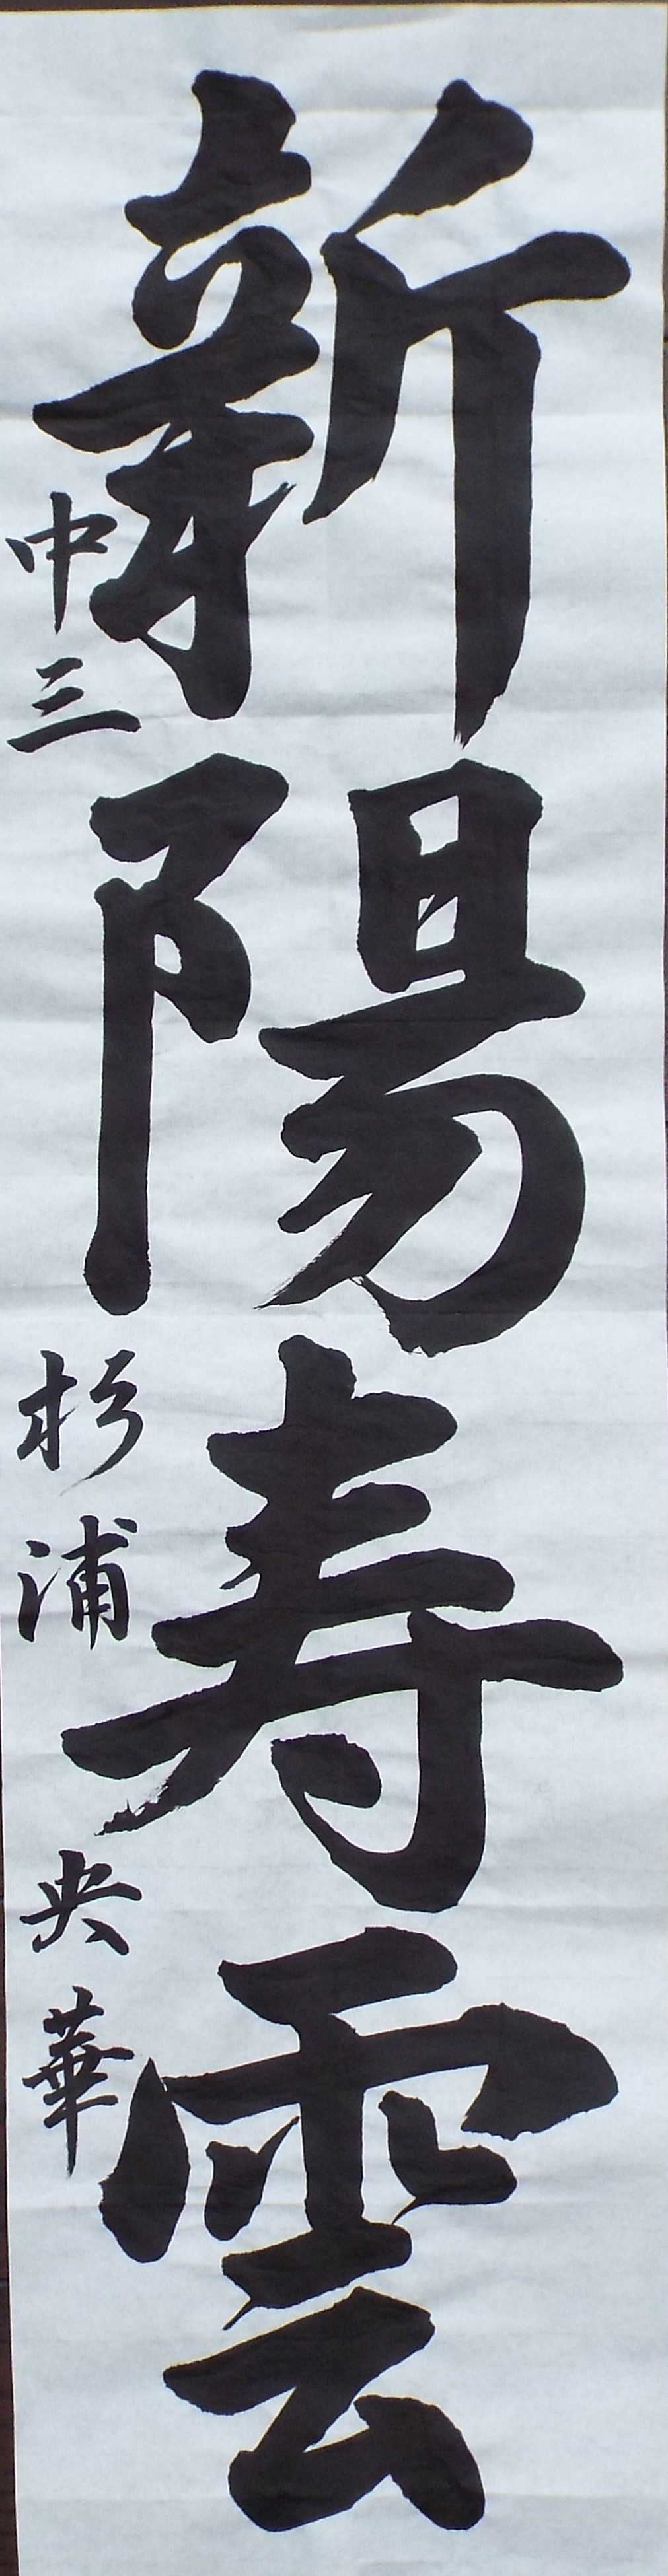 新陽寿雲
中三 杉浦央華